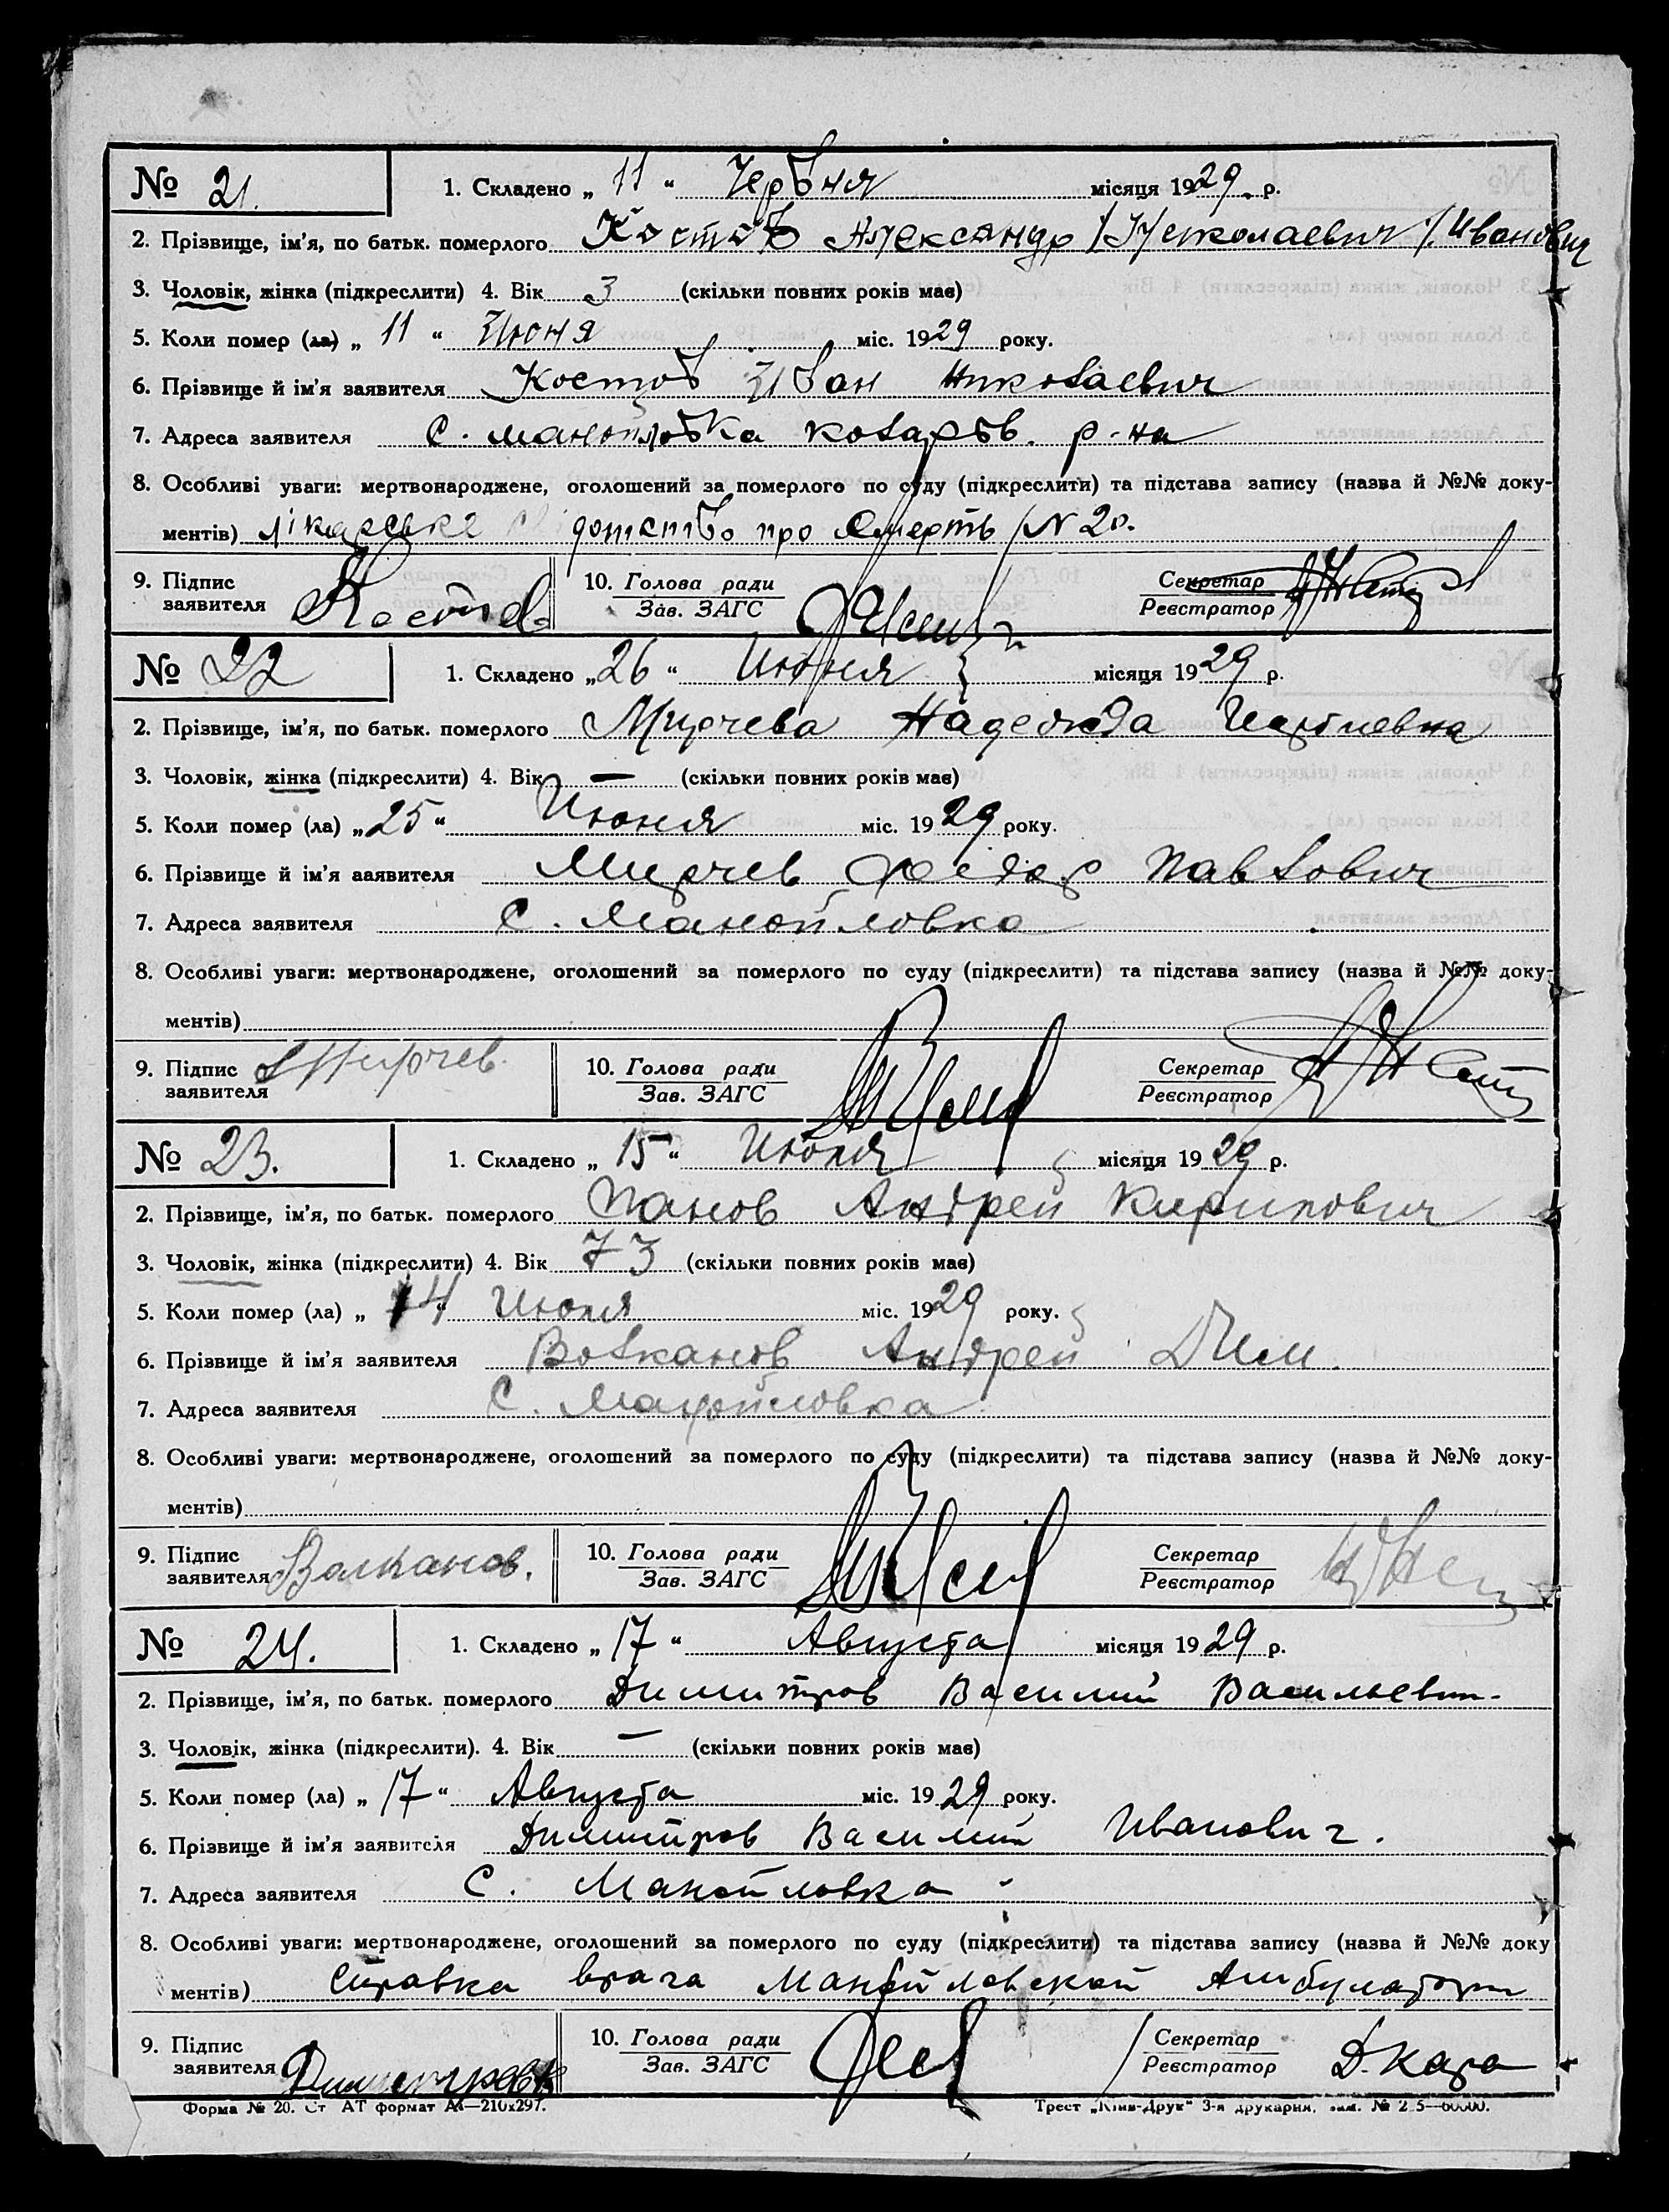 № 21. 1. Складено „ 11 “ Червня місяця 1929. р.
2. Прізвище, ім’я, по батьк. померлого Костов Александр /Николаевич/. Иванович
3. Чоловік, жінка (підкреслити) 4. Вік 3 (скільки повних років має)
5. Коли помер (ла) „ 11 “ Июня міс. 1929 року.
6. Прізвище й ім’я заявителя Костов Иван Николаевич
7. Адреса заявителя с. Манойловка р-на
8. Особливі уваги: мертвонароджене, оголошений за померлого по суду (підкреслити) та підстава запису (назва й №№ доку-
ментів) лікарське про смерть /N 20.
9. Підпис заявителя Костов 10. Голова ради Зав. ЗАГС Секретар Реєстратор
№ 22 1. Складено „26 “ Июня місяця 1929 р.
2. Прізвище, ім’я, по батьк. померлого Мирчева Надежда
3. Чоловік, жінка (підкреслити) 4. Вік — (скільки повних років має)
5. Коли помер (ла) „25“ Июня міс. 1929 року.
6. Прізвище й ім’я заявителя Мирчев Федор Павлович
7. Адреса заявителя С. Манойловка
8. Особливі уваги: мертвонароджене, оголошений за померлого по суду (підкреслити) та підстава запису (назва й №№ доку-
ментів)
9. Підпис заявителя Мирчев. 10. Голова ради Зав. ЗАГС Секретар Реєстратор
№ 23. 1. Складено „ 15 “ Июля місяця 1929 р.
2. Прізвище, ім’я, по батьк. померлого Панов Андрей Кирилович
3. Чоловік, жінка (підкреслити) 4. Вік 73 (скільки повних років має)
5. Коли помер (ла) „ 14 “ Июля міс. 1929 року.
6. Прізвище й ім’я заявителя Волканов Андрей Дим.
7. Адреса заявителя С. Манойловка
8. Особливі уваги: мертвонароджене, оголошений за померлого по суду (підкреслити) та підстава запису (назва й №№ доку-
ментів)
9. Підпис заявителя Волканов. 10. Голова ради Зав. ЗАГС Секретар Реєстратор
№ 24. 1. Складено „ 17 “ Августа місяця 1929 р.
2. Прізвище, ім’я, по батьк. померлого Димитров Василий Васильевич.
3. Чоловік, жінка (підкреслити). 4. Вік — (скільки повних років має)
5. Коли помер (ла) „ 17 “ Августа міс. 1929 року.
6. Прізвище й ім’я заявителя Димитров Василий Иванович.
7. Адреса заявителя С. Манойловка
8. Особливі уваги: мертвонароджене, оголошений за померлого по суду (підкреслити) та підстава запису (назва й №№ доку
ментів) Справка врача Манойловской Амбулатории
9. Підпис заявителя Димитров 10. Голова ради Зав. ЗАГС Секретар Реєстратор Д. Кара
Форма № 20. Ст АТ формат А4—210x297. Трест „Київ-Друк“ 3-я друкарня,